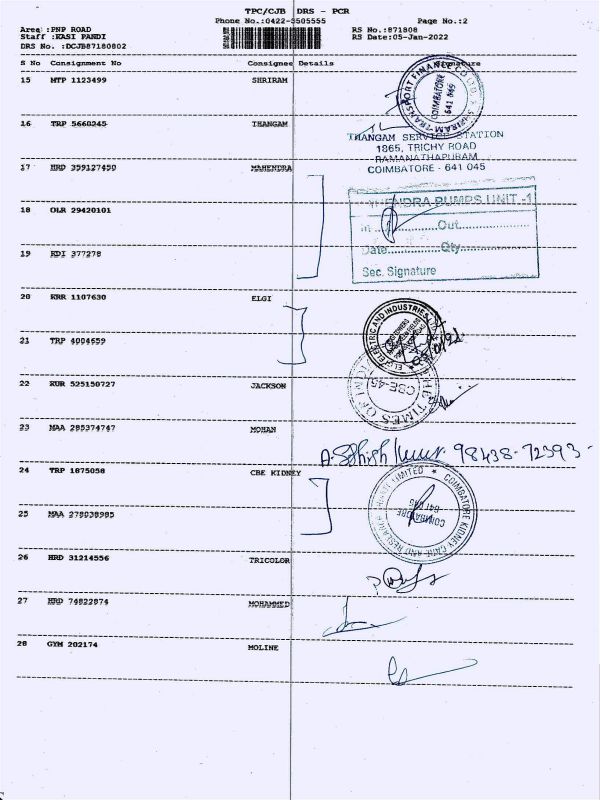 TPC/CJB DRS - PCR
Phone No.:0422-3505555 Page No.:2
Area :PNP ROAD RS No.:871808
Staff :KASI PANDI RS Date:05-Jan-2022
DRS No. :DCJB87180802
S No Consignment No Consignee Details Signature
15 MTP 1123499 SHRIRAM
COIMBATORE
641 045
16 TRP 5660245 THANGAM
THANGAM SERVICE STATION
1865, TRICHY ROAD
RAMANATHAPURAM
COIMBATORE - 641 045
17 HRD 359127450 MAHENDRA
HENDRA PUMPS UNIT -1
18 OLR 29420101
In Out
Date Qty
19 RDI 377278
Sec. Signature
20 KRR 1107630 ELGI
ELGI ELECTRIC AND INDUSTRIES
21 TRP 4004659
22 KUR 525150727 JACKSON
THE TIMES OF
CBE-45
23 MAA 285374747 MOHAN
98438-72393-
24 TRP 1875058 CBE KIDNEY
COIMBATORE KIDNEY CARE AND RESEARCH LIMITED
COIMBATORE
641 045
25 MAA 278038985
26 HRD 31214556 TRICOLOR
27 HRD 74822874 MOHAMMED
28 GYM 202174 MOLINE